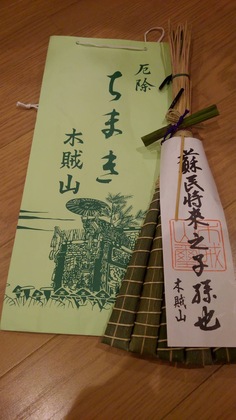 厄除
ちまき
木賊山
蘇民将來之子孫也
木賊山